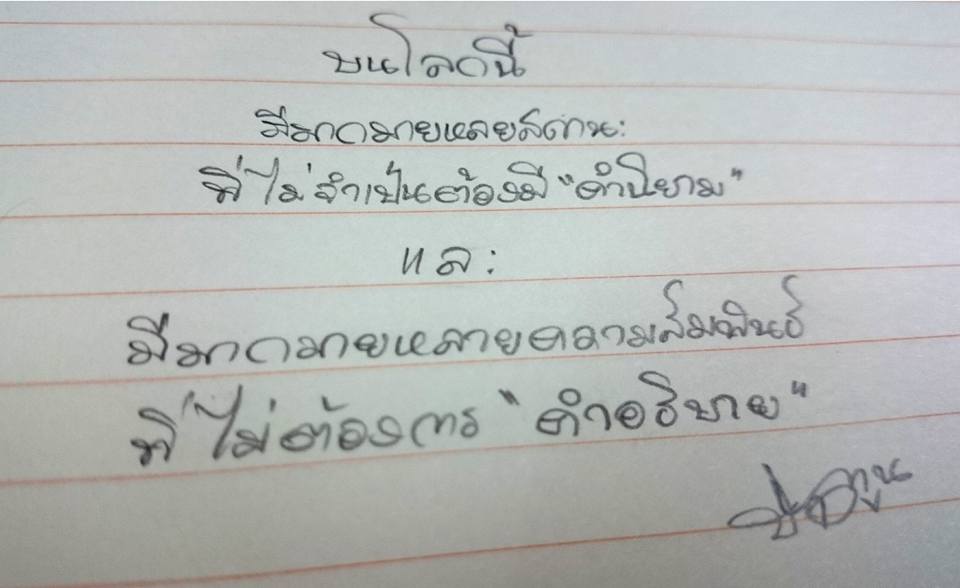 บนโลกนี้
มีมากมายหลายสถานะ
ที่ไม่จำเป็นต้องมี "คำนิยาม"
และ
มีมากมายหลายความสัมพันธ์
ที่ไม่ต้องการ "คำอธิบาย"